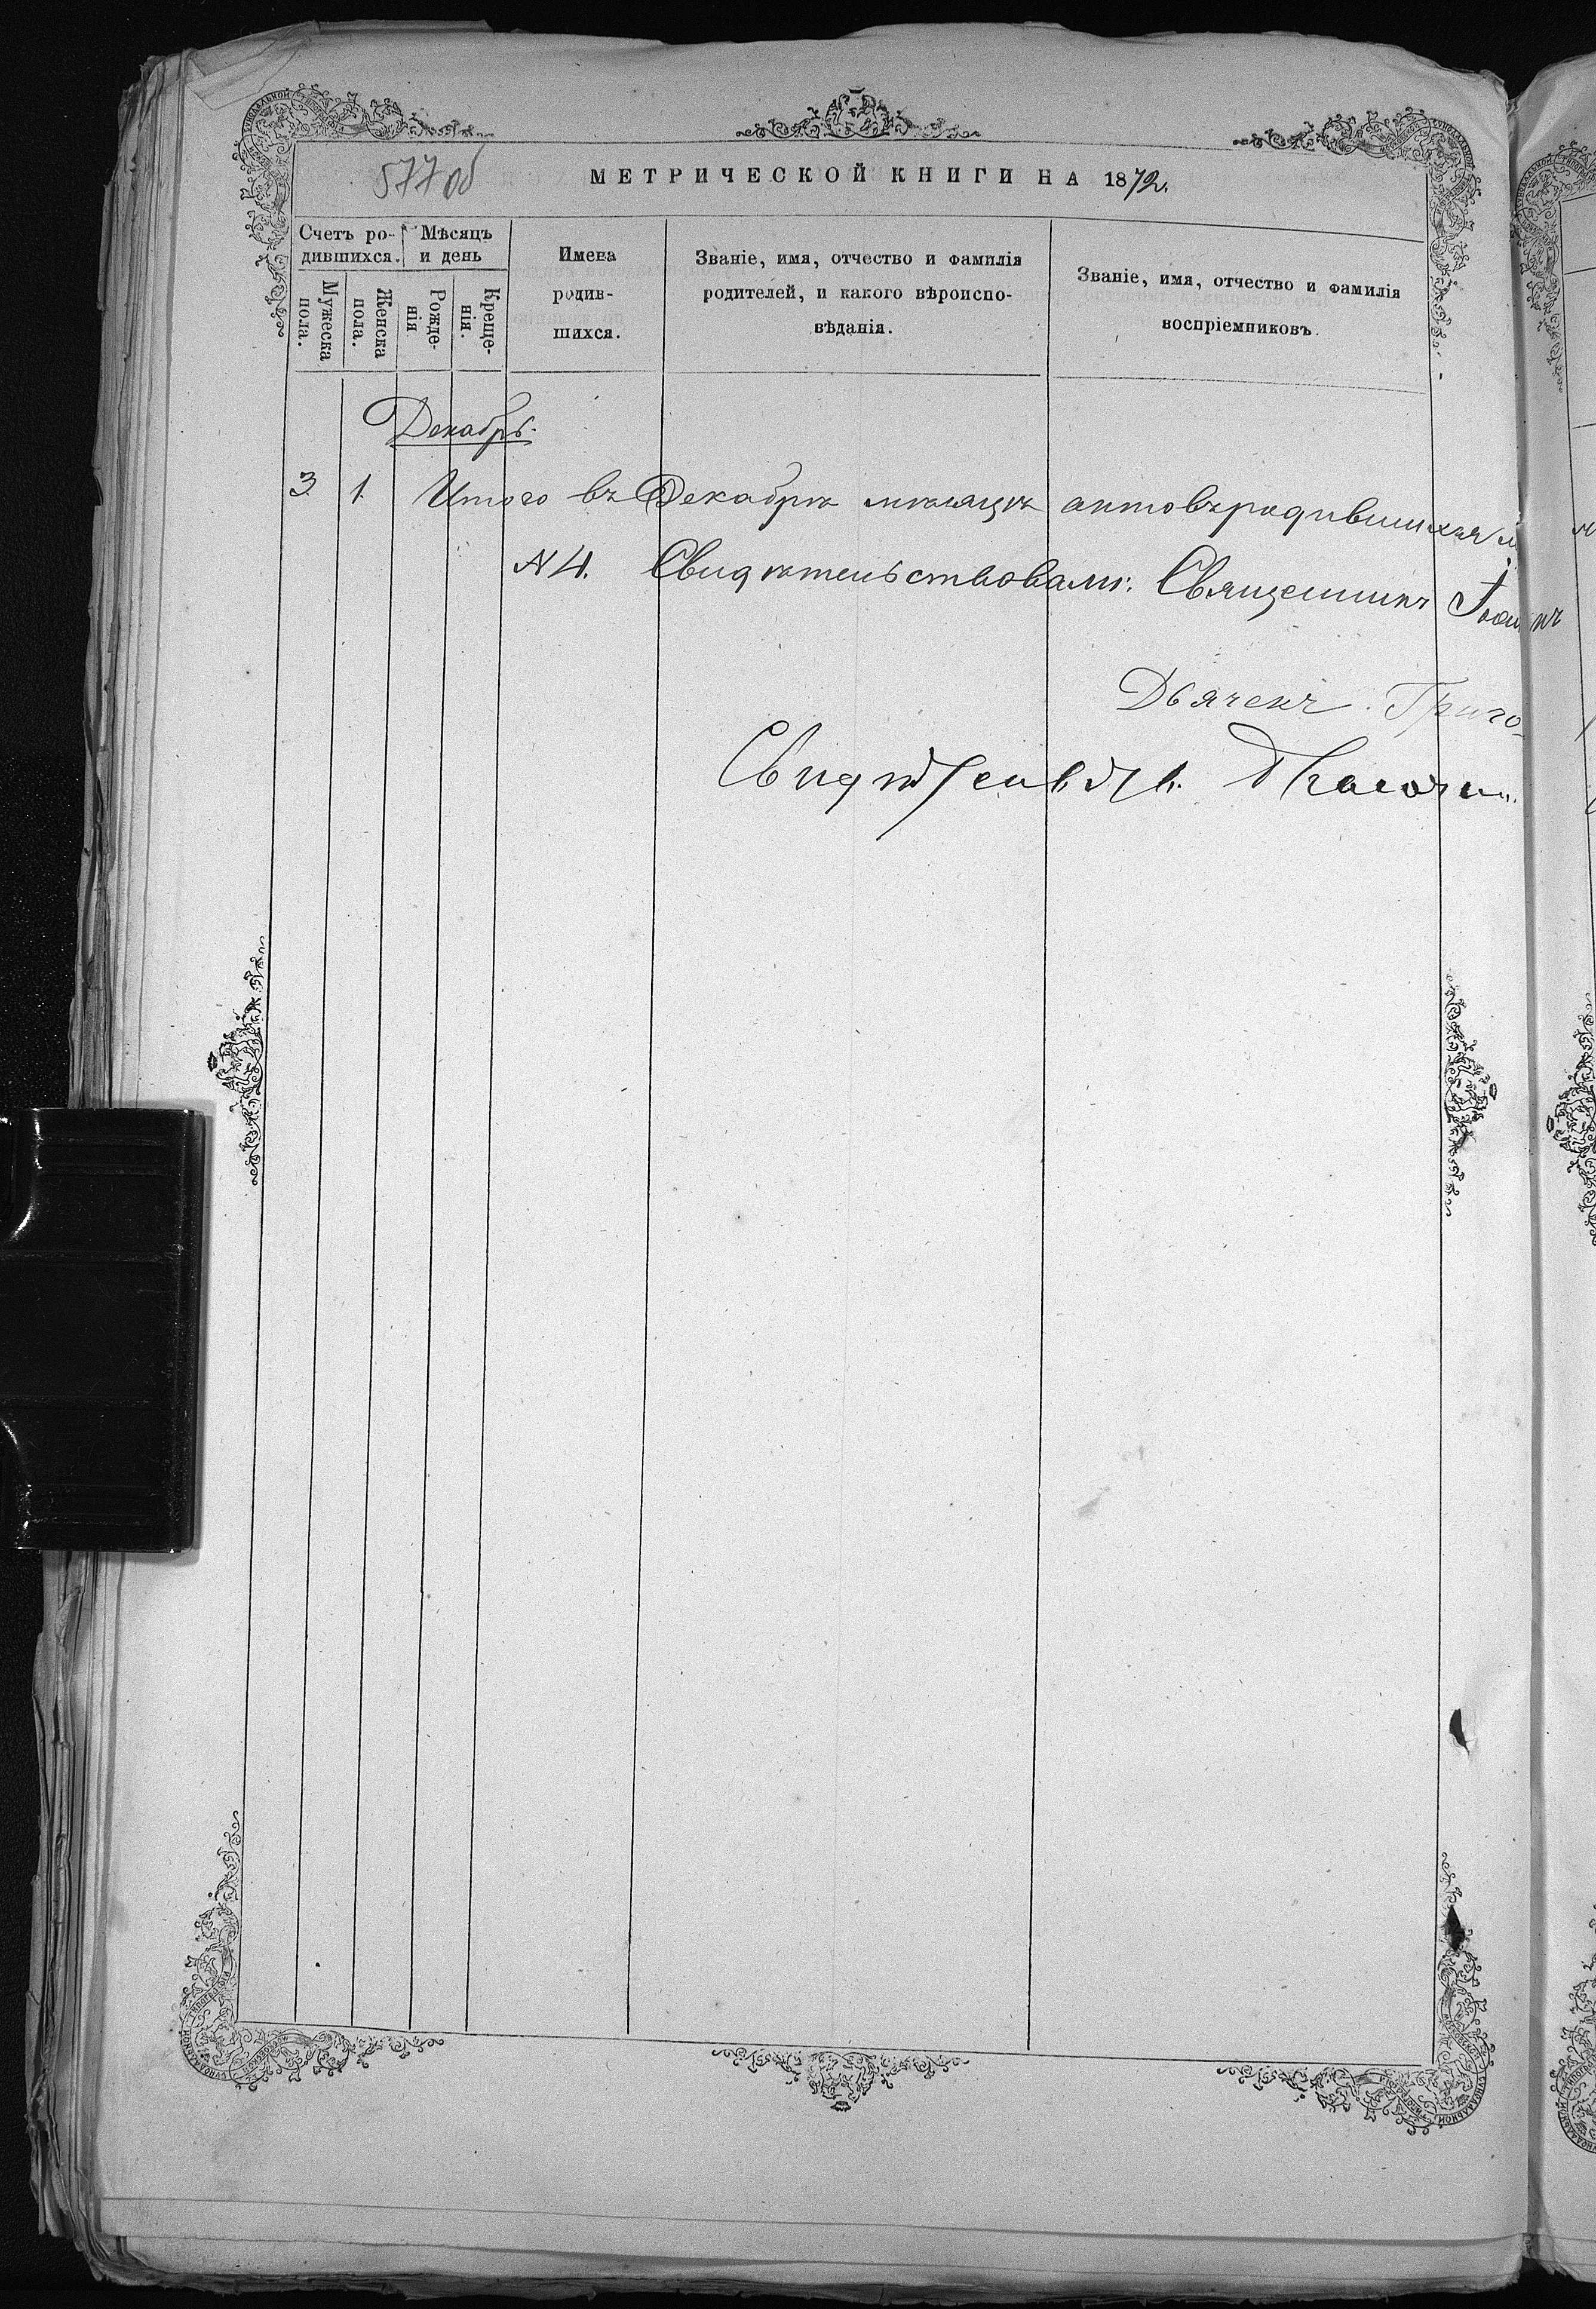 577 об
МЕТРИЧЕСКОЙ КНИГИ НА 1872.
Счетъ ро-
дившихся.
Мѣсяцъ
и день
Мужеска
пола.
Женска
пола.
Рожде-
нія
Креще-
нія.
Имена
родив-
шихся.
Званіе, имя, отчество и фамилія
родителей, и какого вѣроиспо-
вѣданія.
Званіе, имя, отчество и фамилія
воспріемниковъ.
Декабрь.
3 1. Итого въ Декабрѣ мѣсяцѣ актовъ родившихся
№ 4. Свидѣтельствовали: Священникъ Іоаннъ
Дьячекъ Григо-